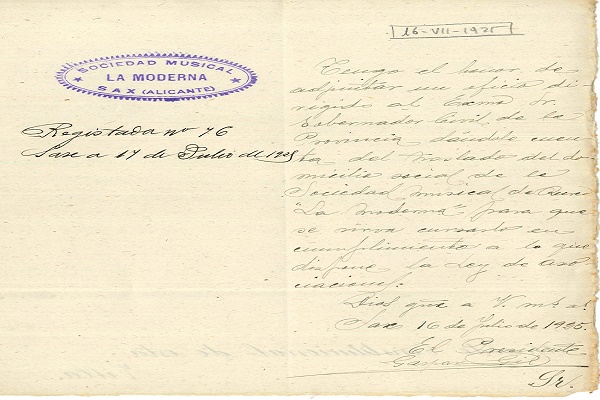 SOCIEDAD MUSICAL
LA MODERNA
SAX (ALICANTE)
Registrada nº 76
Sax a 17 de Julio de 1925
16-VII-1925
Tengo el honor de
adjuntar un oficio di-
rigido al Exmo Sr.
Gobernador Civil de la
Provincia dándole cuen-
ta del traslado del do-
micilio social de la
Sociedad Musical de
"La Moderna" para que
se sirva cursarlo en
cumplimiento a lo que
dispone la Ley de Aso-
ciaciones.
Dios gue a V. ms as.
Sax 16 de Julio de 1925.
El Presidente
Sr.